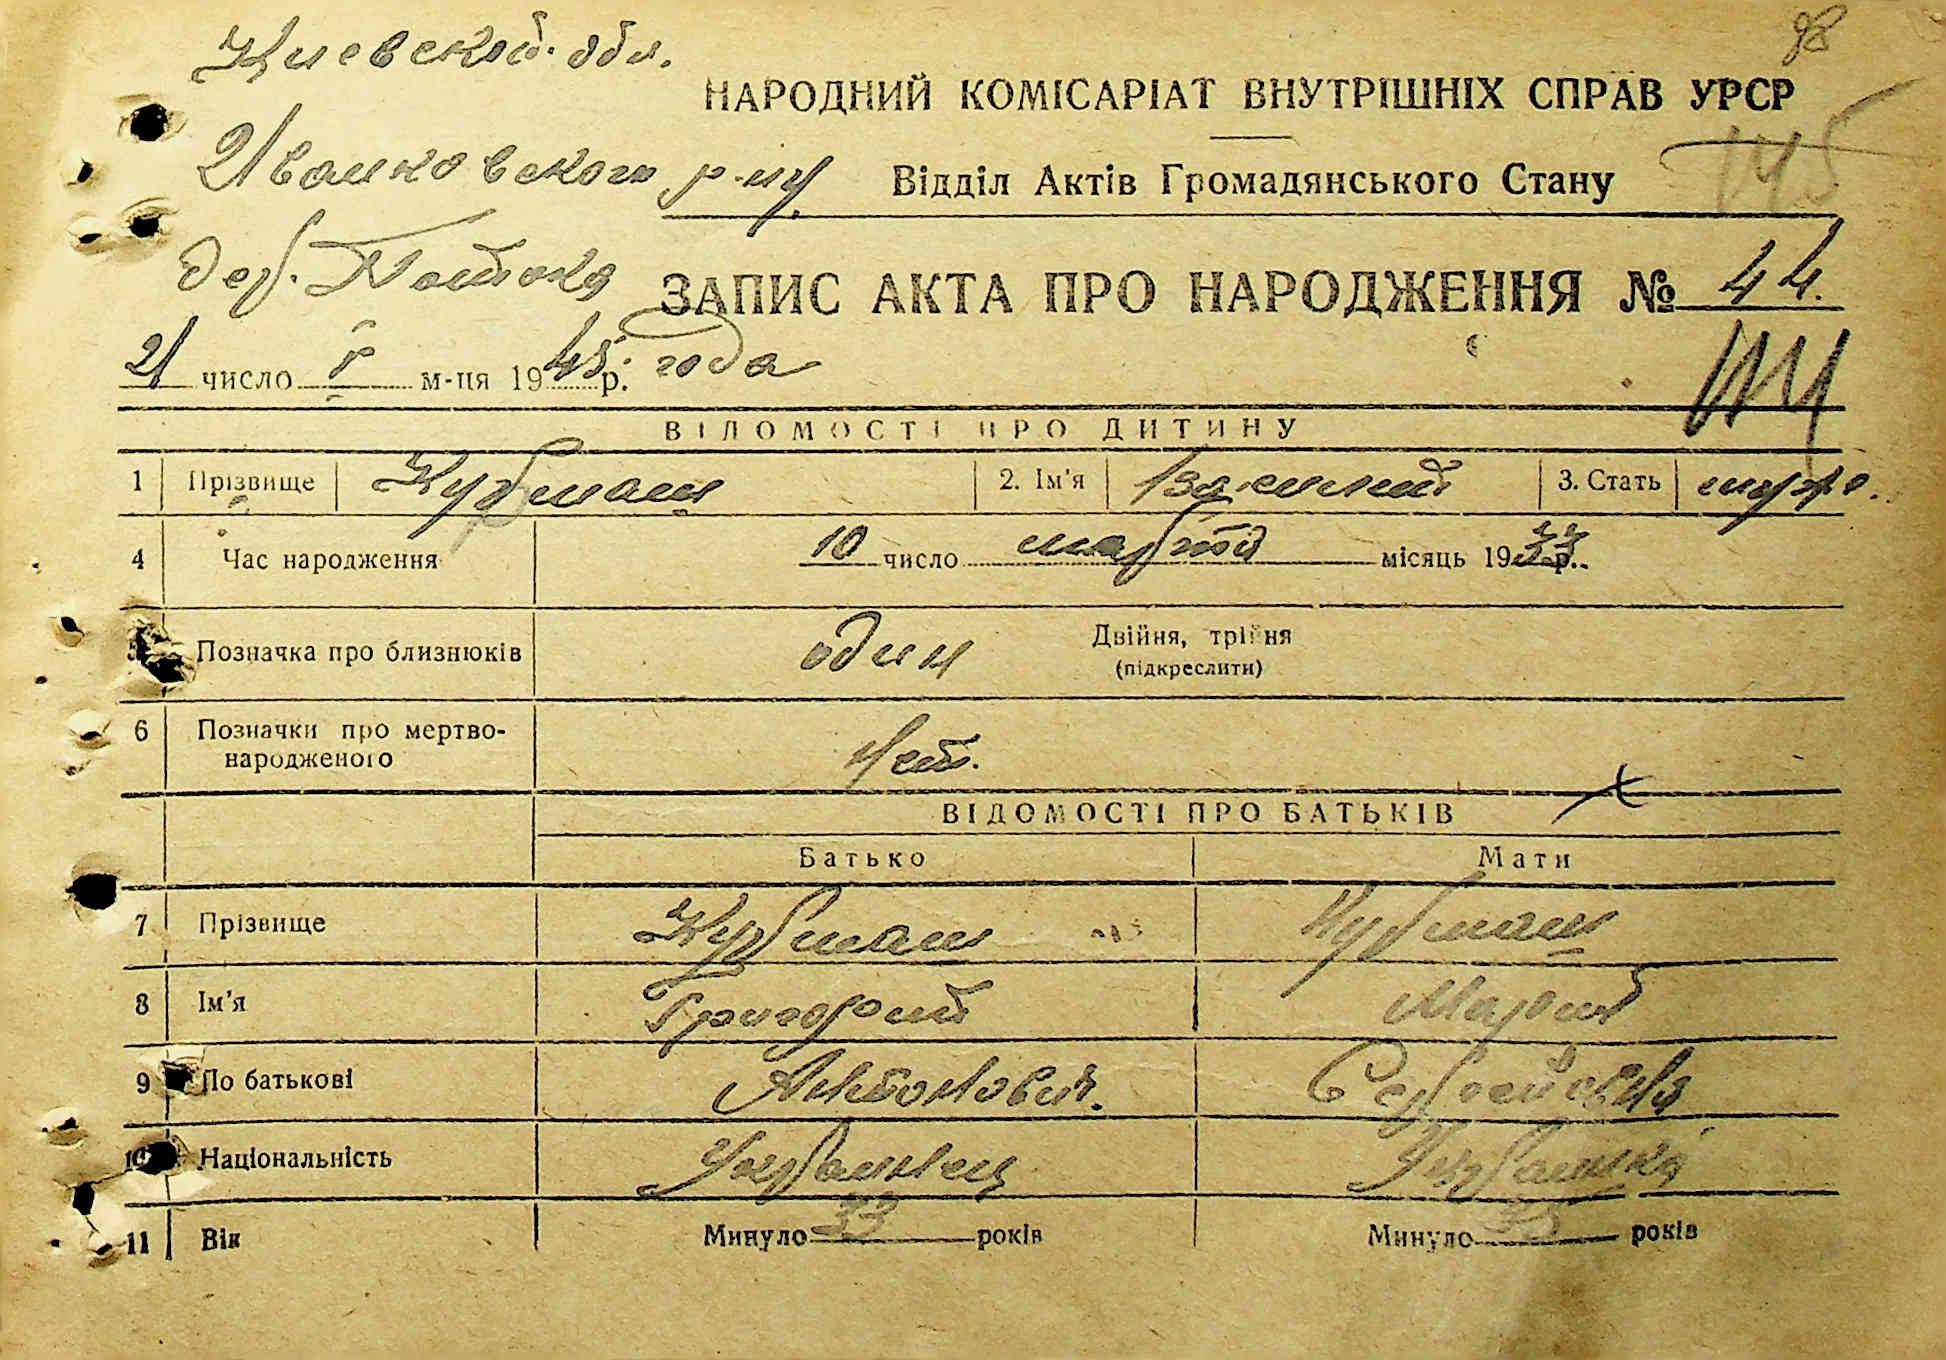 98
Киевской. обл.
НАРОДНИЙ КОМІСАРІАТ ВНУТРІШНІХ СПРАВ УРСР
145
Иванковского р-ну
Відділ Актів Громадянського Стану
дер.
ЗАПИС АКТА ПРО НАРОДЖЕННЯ № 44.
21 число V м-ця 1945 р. года
ВІДОМОСТІ ПРО ДИТИНУ
1 Прізвище Курбмаш 2. Ім'я Василий 3. Стать
4 Час народження 10 число марта місяць 19 р.
5 Позначка про близнюків один Двійня, трійня
(підкреслити)
6 Позначки про мертво-
народженого Нет.
ВІДОМОСТІ ПРО БАТЬКІВ
Батько Мати
7 Прізвище
8 Ім'я Григорий Марий
9 По батькові Антонович. Сергеевна
10 Національність Украинец Украинка
11 Вік Минуло 33 років Минуло років